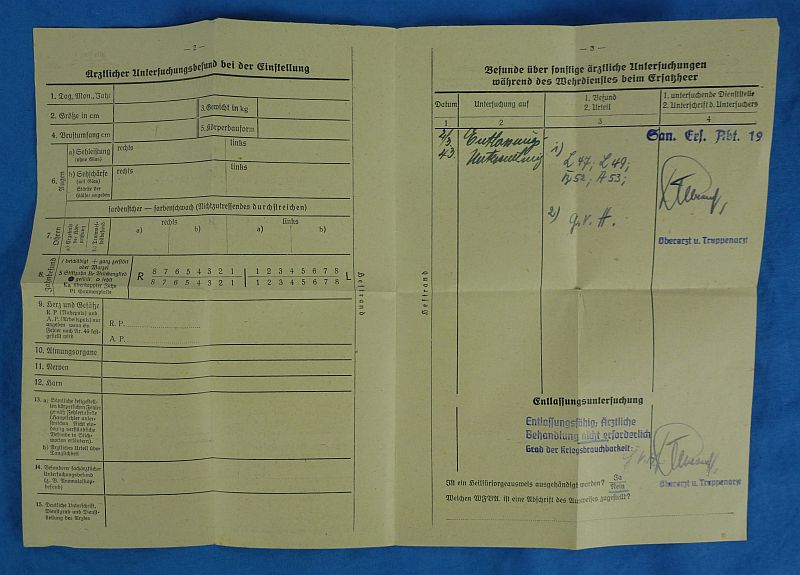 — 2 —
Ärztlicher Untersuchungsbefund bei der Einstellung
1. Tag, Mon., Jahr
2. Größe in cm
3. Gewicht in kg
4. Brustumfang cm
5. Körperbauform
6. Augen
a) Sehleistung
(ohne Glas)
rechts
links
b) Sehschärfe
(mit Glas)
Stärke der
Gläser angeben
rechts
links
farbensicher — farbenschwach (Nichtzutreffendes durchstreichen)
7. Ohren
rechts
links
a)
b)
a)
b)
8. Zahnbefund
R
8 7 6 5 4 3 2 1
1 2 3 4 5 6 7 8
L
8 7 6 5 4 3 2 1
1 2 3 4 5 6 7 8
9. Herz und Gefäße
R. P. (Ruhepuls) und
A. P. (Arbeitspuls) nur
angeben, wenn ein
Fehler nach Nr. 49 fest-
gestellt wird
R. P.
A. P.
10. Atmungsorgane
11. Nerven
12. Harn
13. a) Sämtliche festgestell-
ten körperlichen Fehler
gemäß Fehlertabelle
(Hauptfehler unter-
streichen.
b) Ärztliches Urteil über
Tauglichkeit
14. Besonderer fachärztlicher
Untersuchungsbefund
15. Deutliche Unterschrift,
Dienstgrad und Dienst-
stellung des Arztes
Heftrand
Heftrand
— 3 —
Befunde über sonstige ärztliche Untersuchungen
während des Wehrdienstes beim Ersatzheer
Datum
Untersuchung auf
1. Befund
2. Urteil
1. untersuchende Dienststelle
2. Unterschrift d. Untersuchers
1
2
3
4
2/3.
43.
Entlassungs-
Untersuchung
1)
L 47, L 49,
53;
2) g. v. H.
San. Ers. Abt. 19
Oberarzt u. Truppenarzt
Entlassungsuntersuchung
Entlassungsfähig: Ärztliche
Behandlung nicht erforderlich
Grad der Kriegsbrauchbarkeit:
Oberarzt u. Truppenarzt
Ist ein Heilfürsorgeausweis ausgehändigt worden?
Ja
Nein
Welchem WFVA. ist eine Abschrift des Ausweises zugestellt?